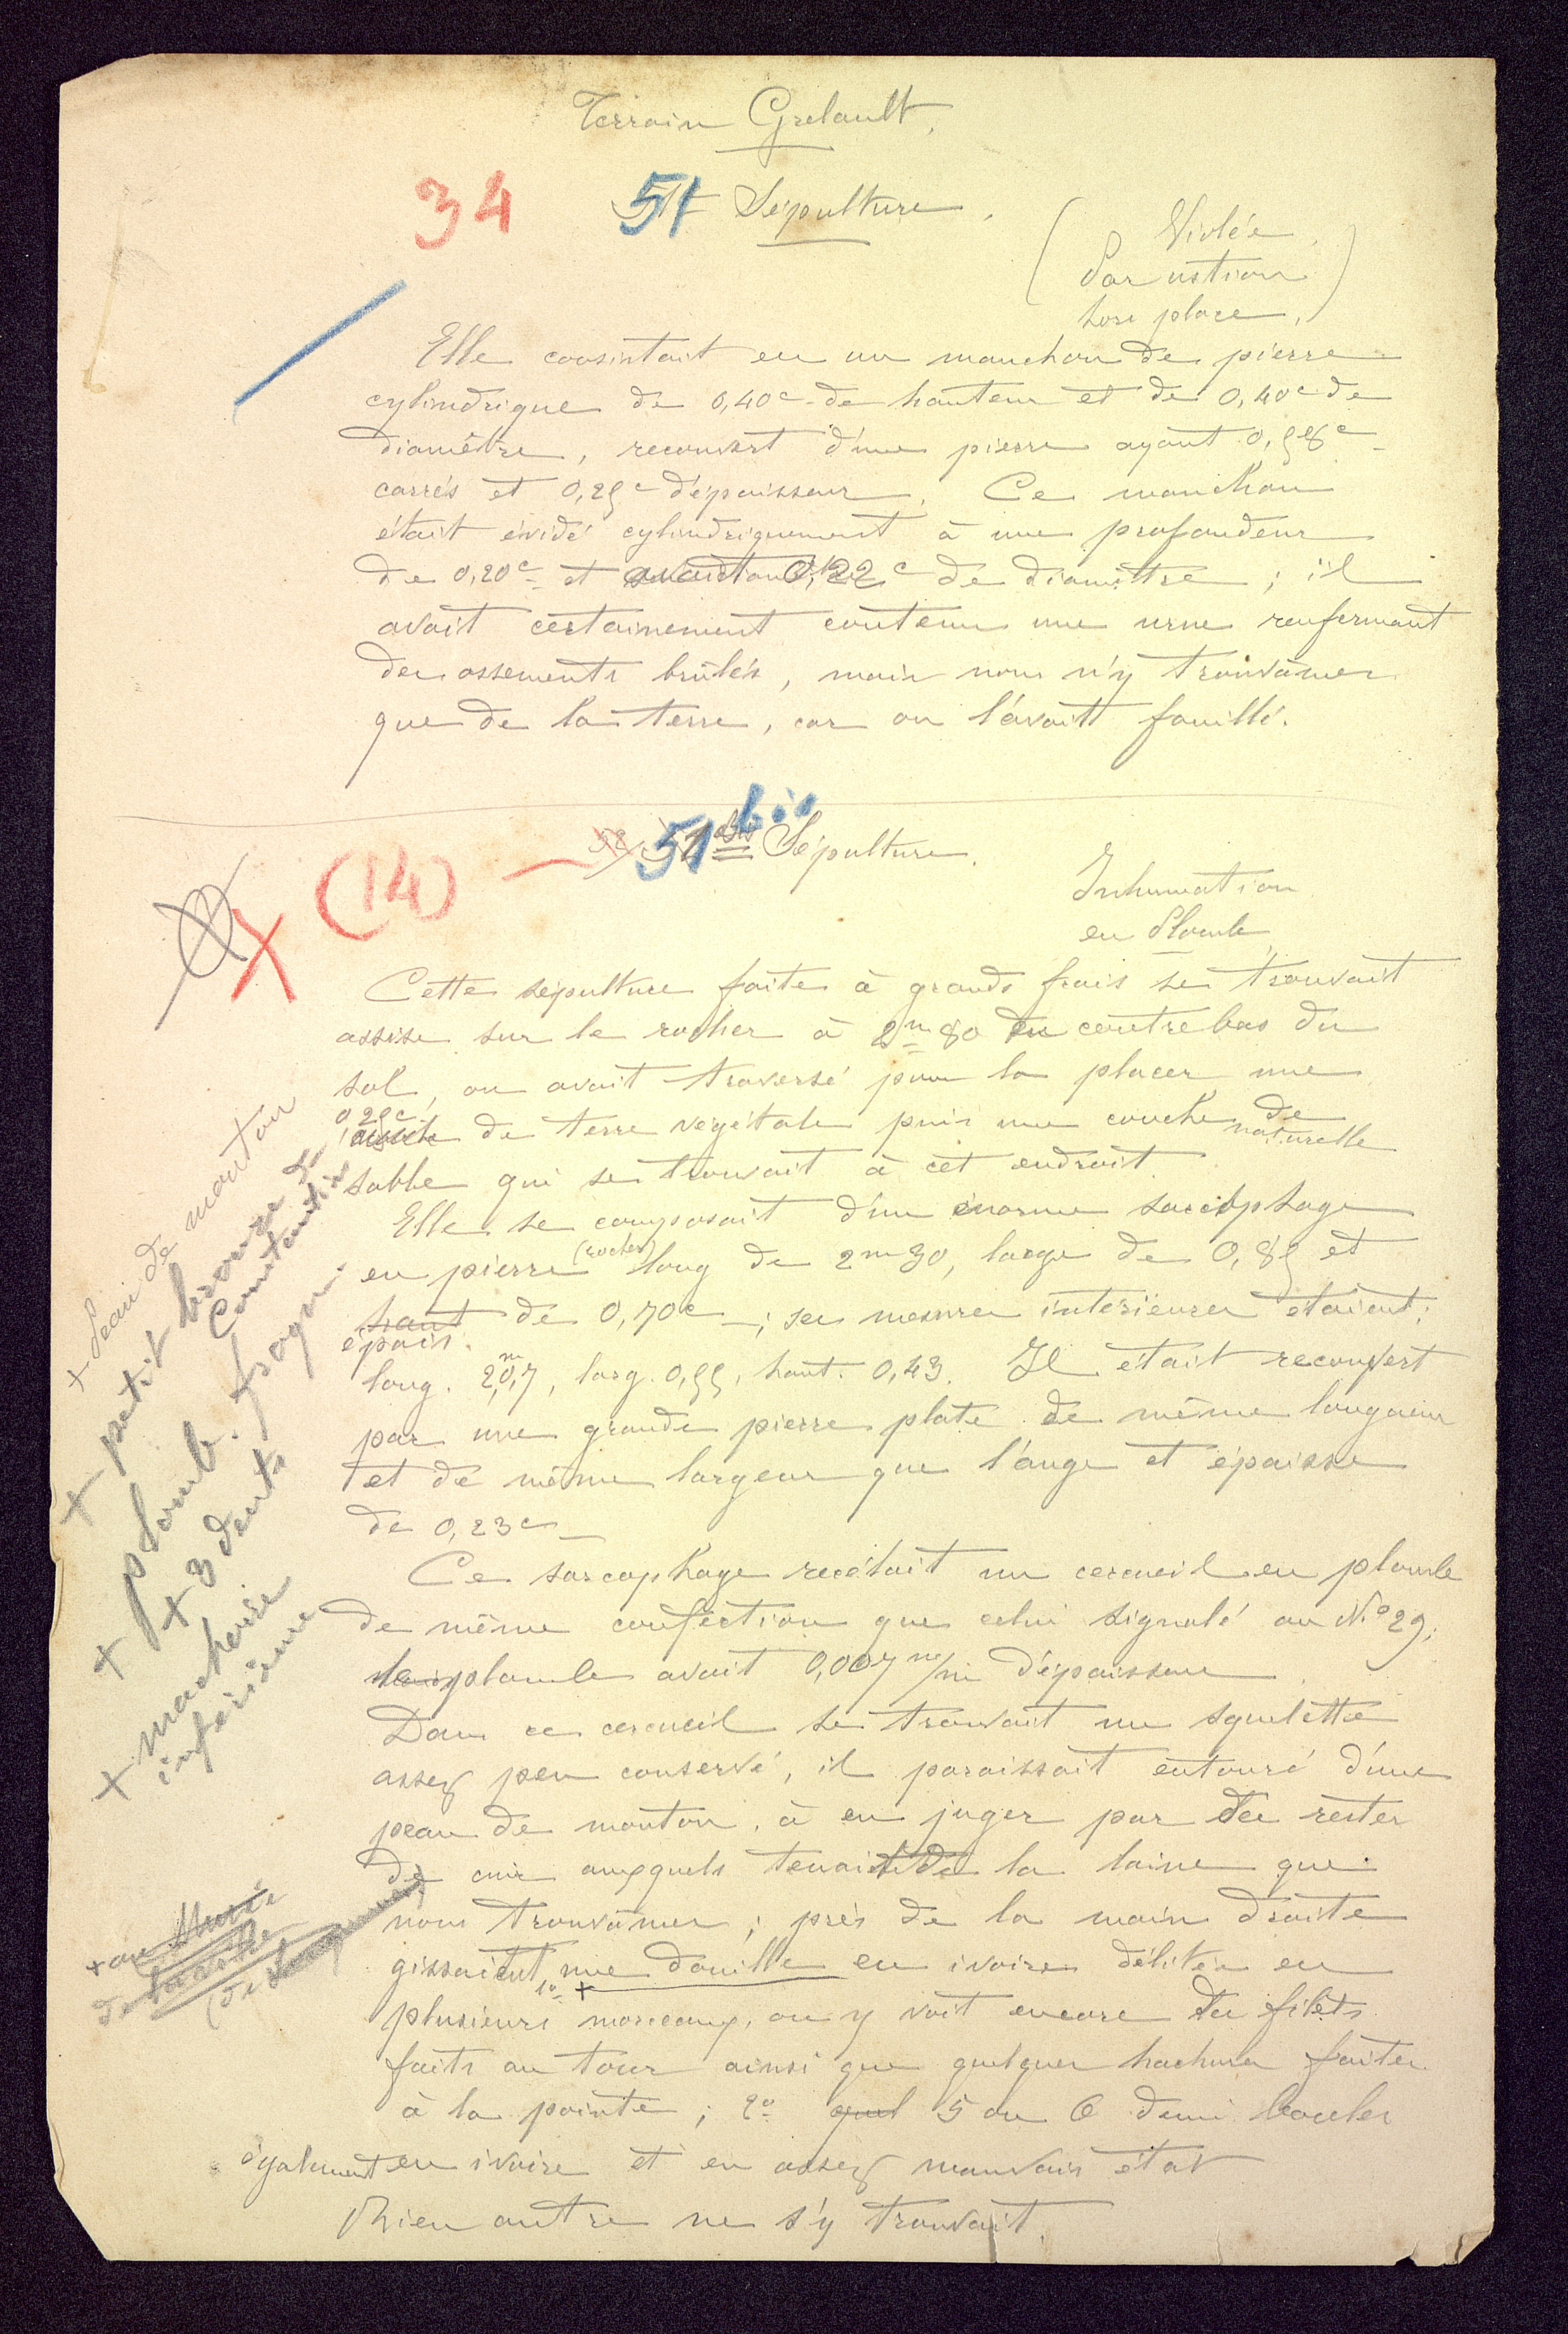 Terrain Grelault.
34 51 Sépulture.
( Violée.
Par ustion
hors place. )
Elle consistait en un manchon de pierre
cylindrique de 0,40c de hauteur et de 0,40c de
diamètre, recouvert d'une pierre ayant 0,58c
carrés et 0,25c d'épaisseur. Ce manchon
était évidé cylindriquement à une profondeur
de 0,20c et 0,22c de diamètre ; il
avait certainement contenu une urne renfermant
des ossements brûlés, mais nous n'y trouvâmes
que de la terre, car on l'avait fouillé.
(14) 51 bis Sépulture.
Inhumation
en Plomb
Cette sépulture faite à grands frais se trouvait
assise sur le rocher à 2m80 en contrebas du
sol, on avait traversé pour la placer une
0,25c
couche de terre végétale puis une couche naturelle de
sable qui se trouvait à cet endroit.
Elle se composait d'un énorme sarcophage
en pierre (rocher) long de 2m30, large de 0,85 et
haut de 0,70c ; ses mesures intérieures étaient :
épais.
long. 2m,07, larg. 0,55, haut. 0,43. Il était recouvert
par une grande pierre plate de même longueur
et de même largeur que l'auge et épaisse
de 0,23c
Ce sarcophage recélait un cercueil en plomb
de même confection que celui signalé au No 29.
le plomb avait 0,007 m/m d'épaisseur.
Dans ce cercueil se trouvait un squelette
assez peu conservé, il paraissait entouré d'une
peau de mouton, à en juger par des restes
de cuir auxquels tenait de la laine que
nous trouvâmes ; près de la main droite
gissaient 1o une douille en ivoire délitée en
plusieurs + morceaux, on y voit encore des filets
faits au tour ainsi que quelques hachures faites
à la pointe ; 2o quel 5 ou 6 demi boucles
également en ivoire et en assez mauvais état
Rien autre ne s'y trouvait.
+ Peau de mouton
+ petit bronze de
Constantin
+ plomb. fragm.
+ 3 dents
+ machoire
inférieure
+ au Musée